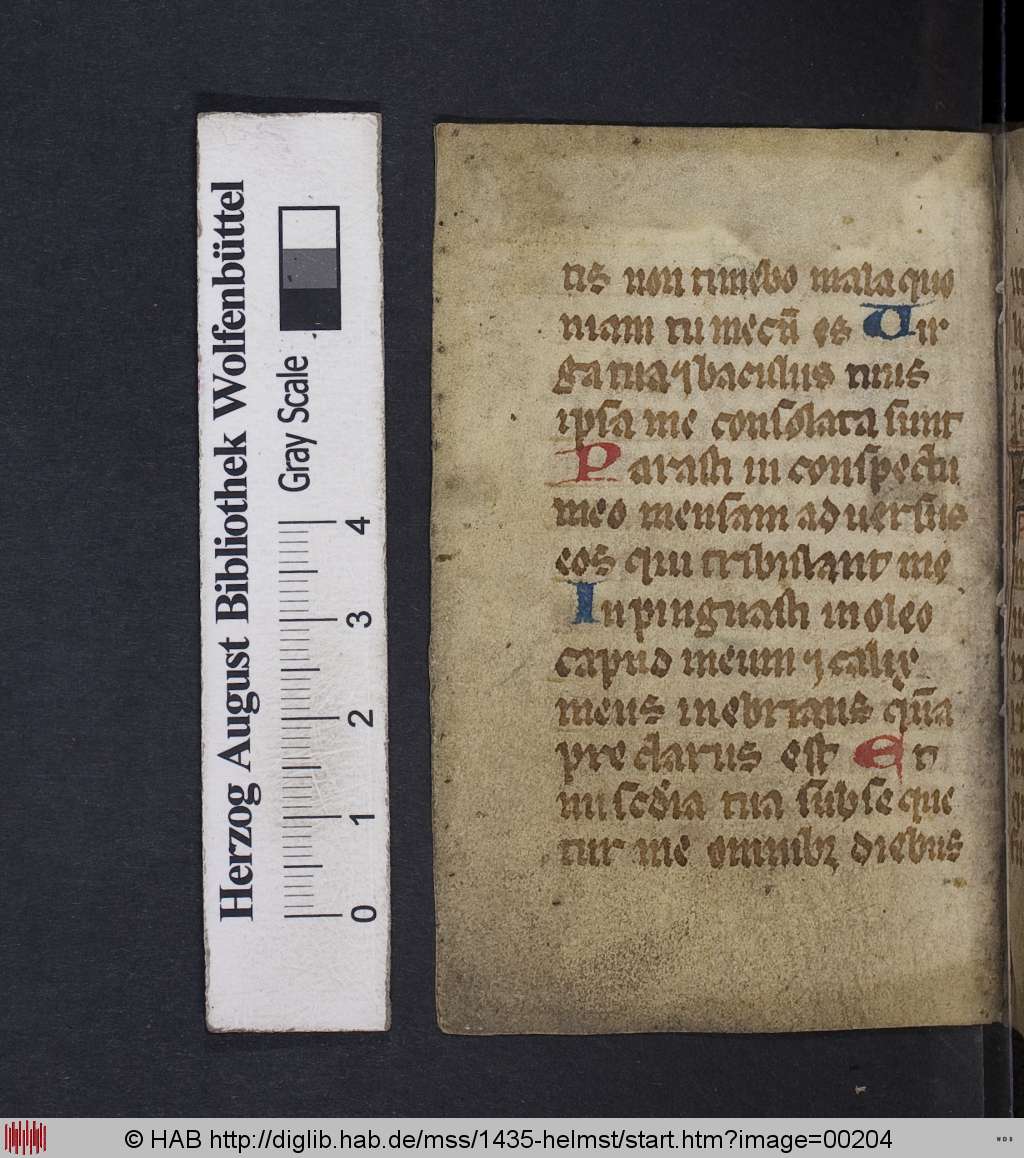 Herzog August Bibliothek Wolfenbüttel
Gray Scale
0 1 2 3 4
tis non timebo mala quo
niam tu mecū es Vir
ga tua ⁊ baculus tuus
ipsa me consolata sunt
Parasti in conspectu
meo mensam aduersus
eos qui tribulant me
Inpinguasti in oleo
capud meum ⁊ calix
meus inebrians q̄ua
preclarus est Et
miscd̄ia tua subseque
tur me omnibꝫ diebus
© HAB http://diglib.hab.de/mss/1435-helmst/start.htm?image=00204